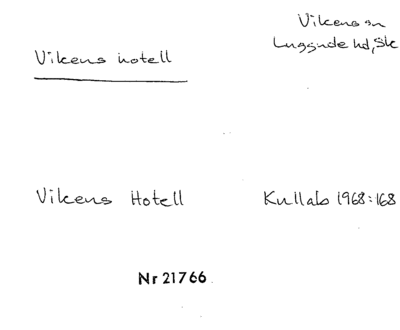 Vikens hotell
Vikens sn
Luggude hd, Sk
Vikens Hotell
Kullab 1968:168
Nr 21766